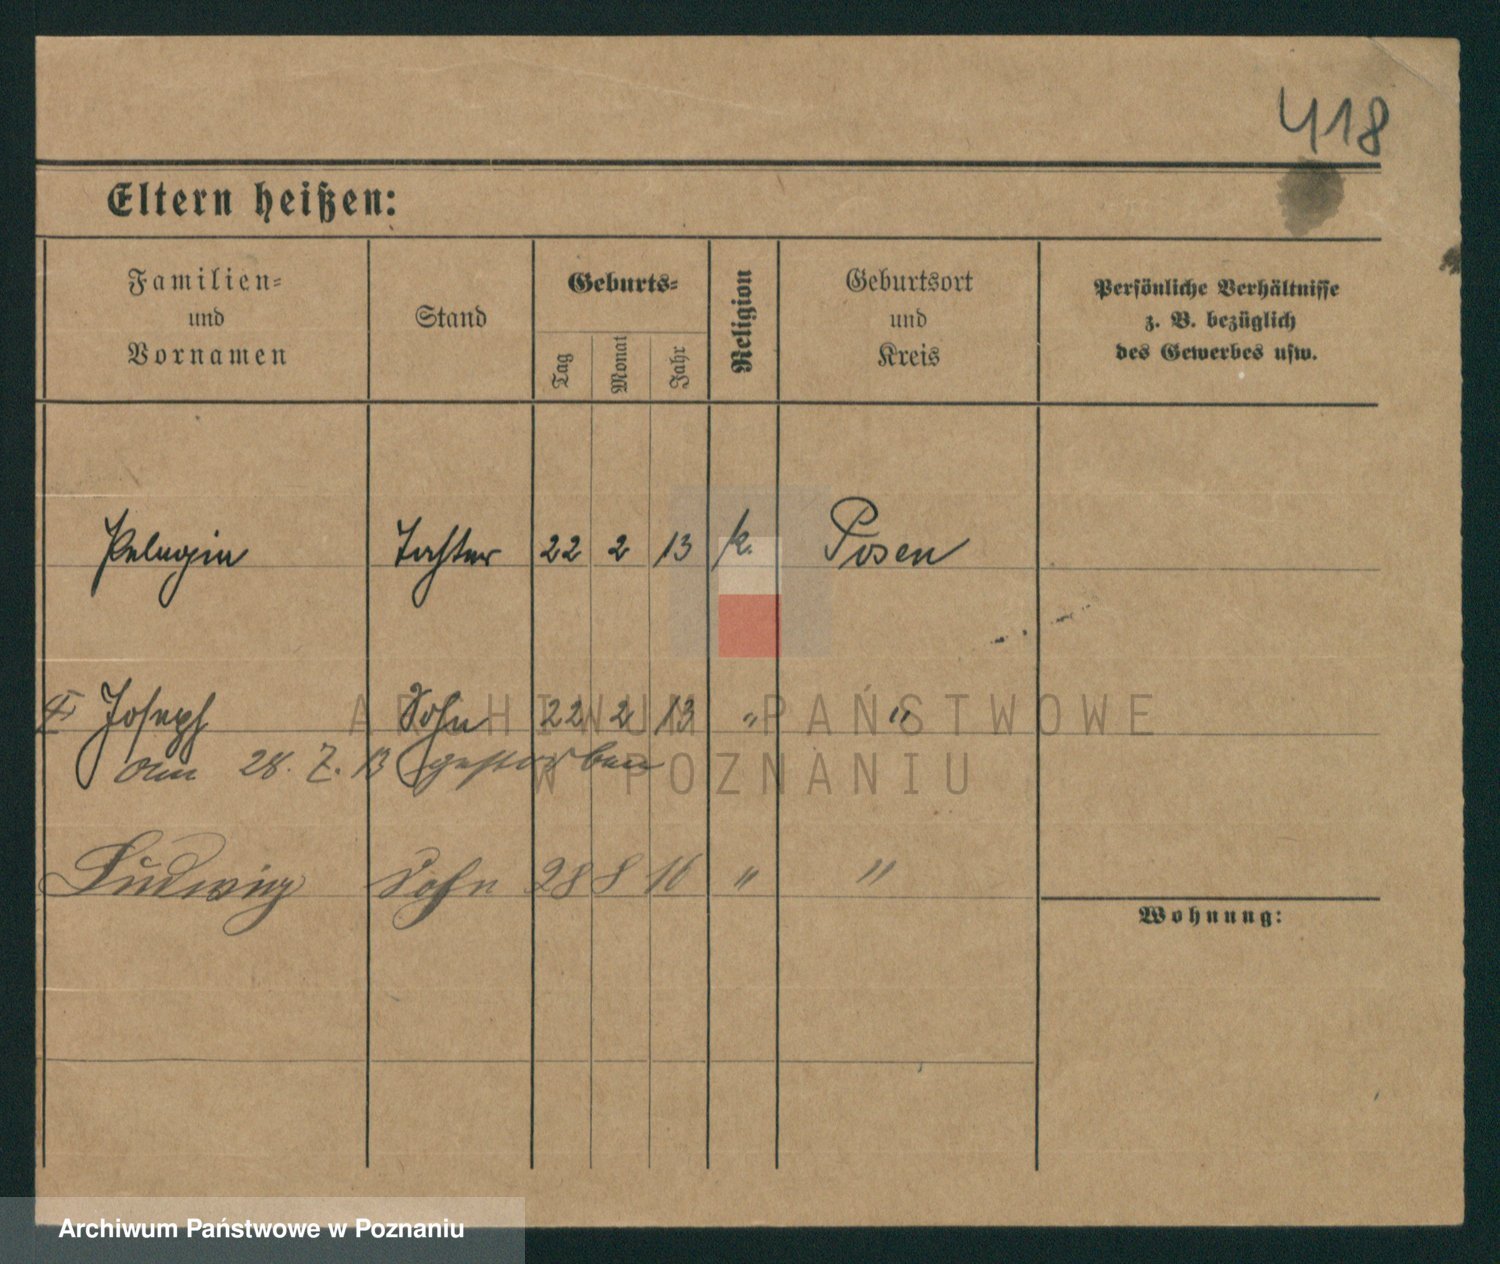 418
Eltern heißen:
Familien- und Vornamen
Stand
Geburts-
Tag
Monat
Jahr
Religion
Geburtsort und Kreis
Persönliche Verhältnisse
z. B. bezüglich
des Gewerbes usw.
Pelagia Tochter 22 2 13 k. Posen
Joseph Sohn 22 2 13 " "
am 28. 7. 13 gestorben
Ludwig Sohn 28 8 16 " "
Wohnung:
ARCHIWUM PAŃSTWOWE
W POZNANIU
Archiwum Państwowe w Poznaniu